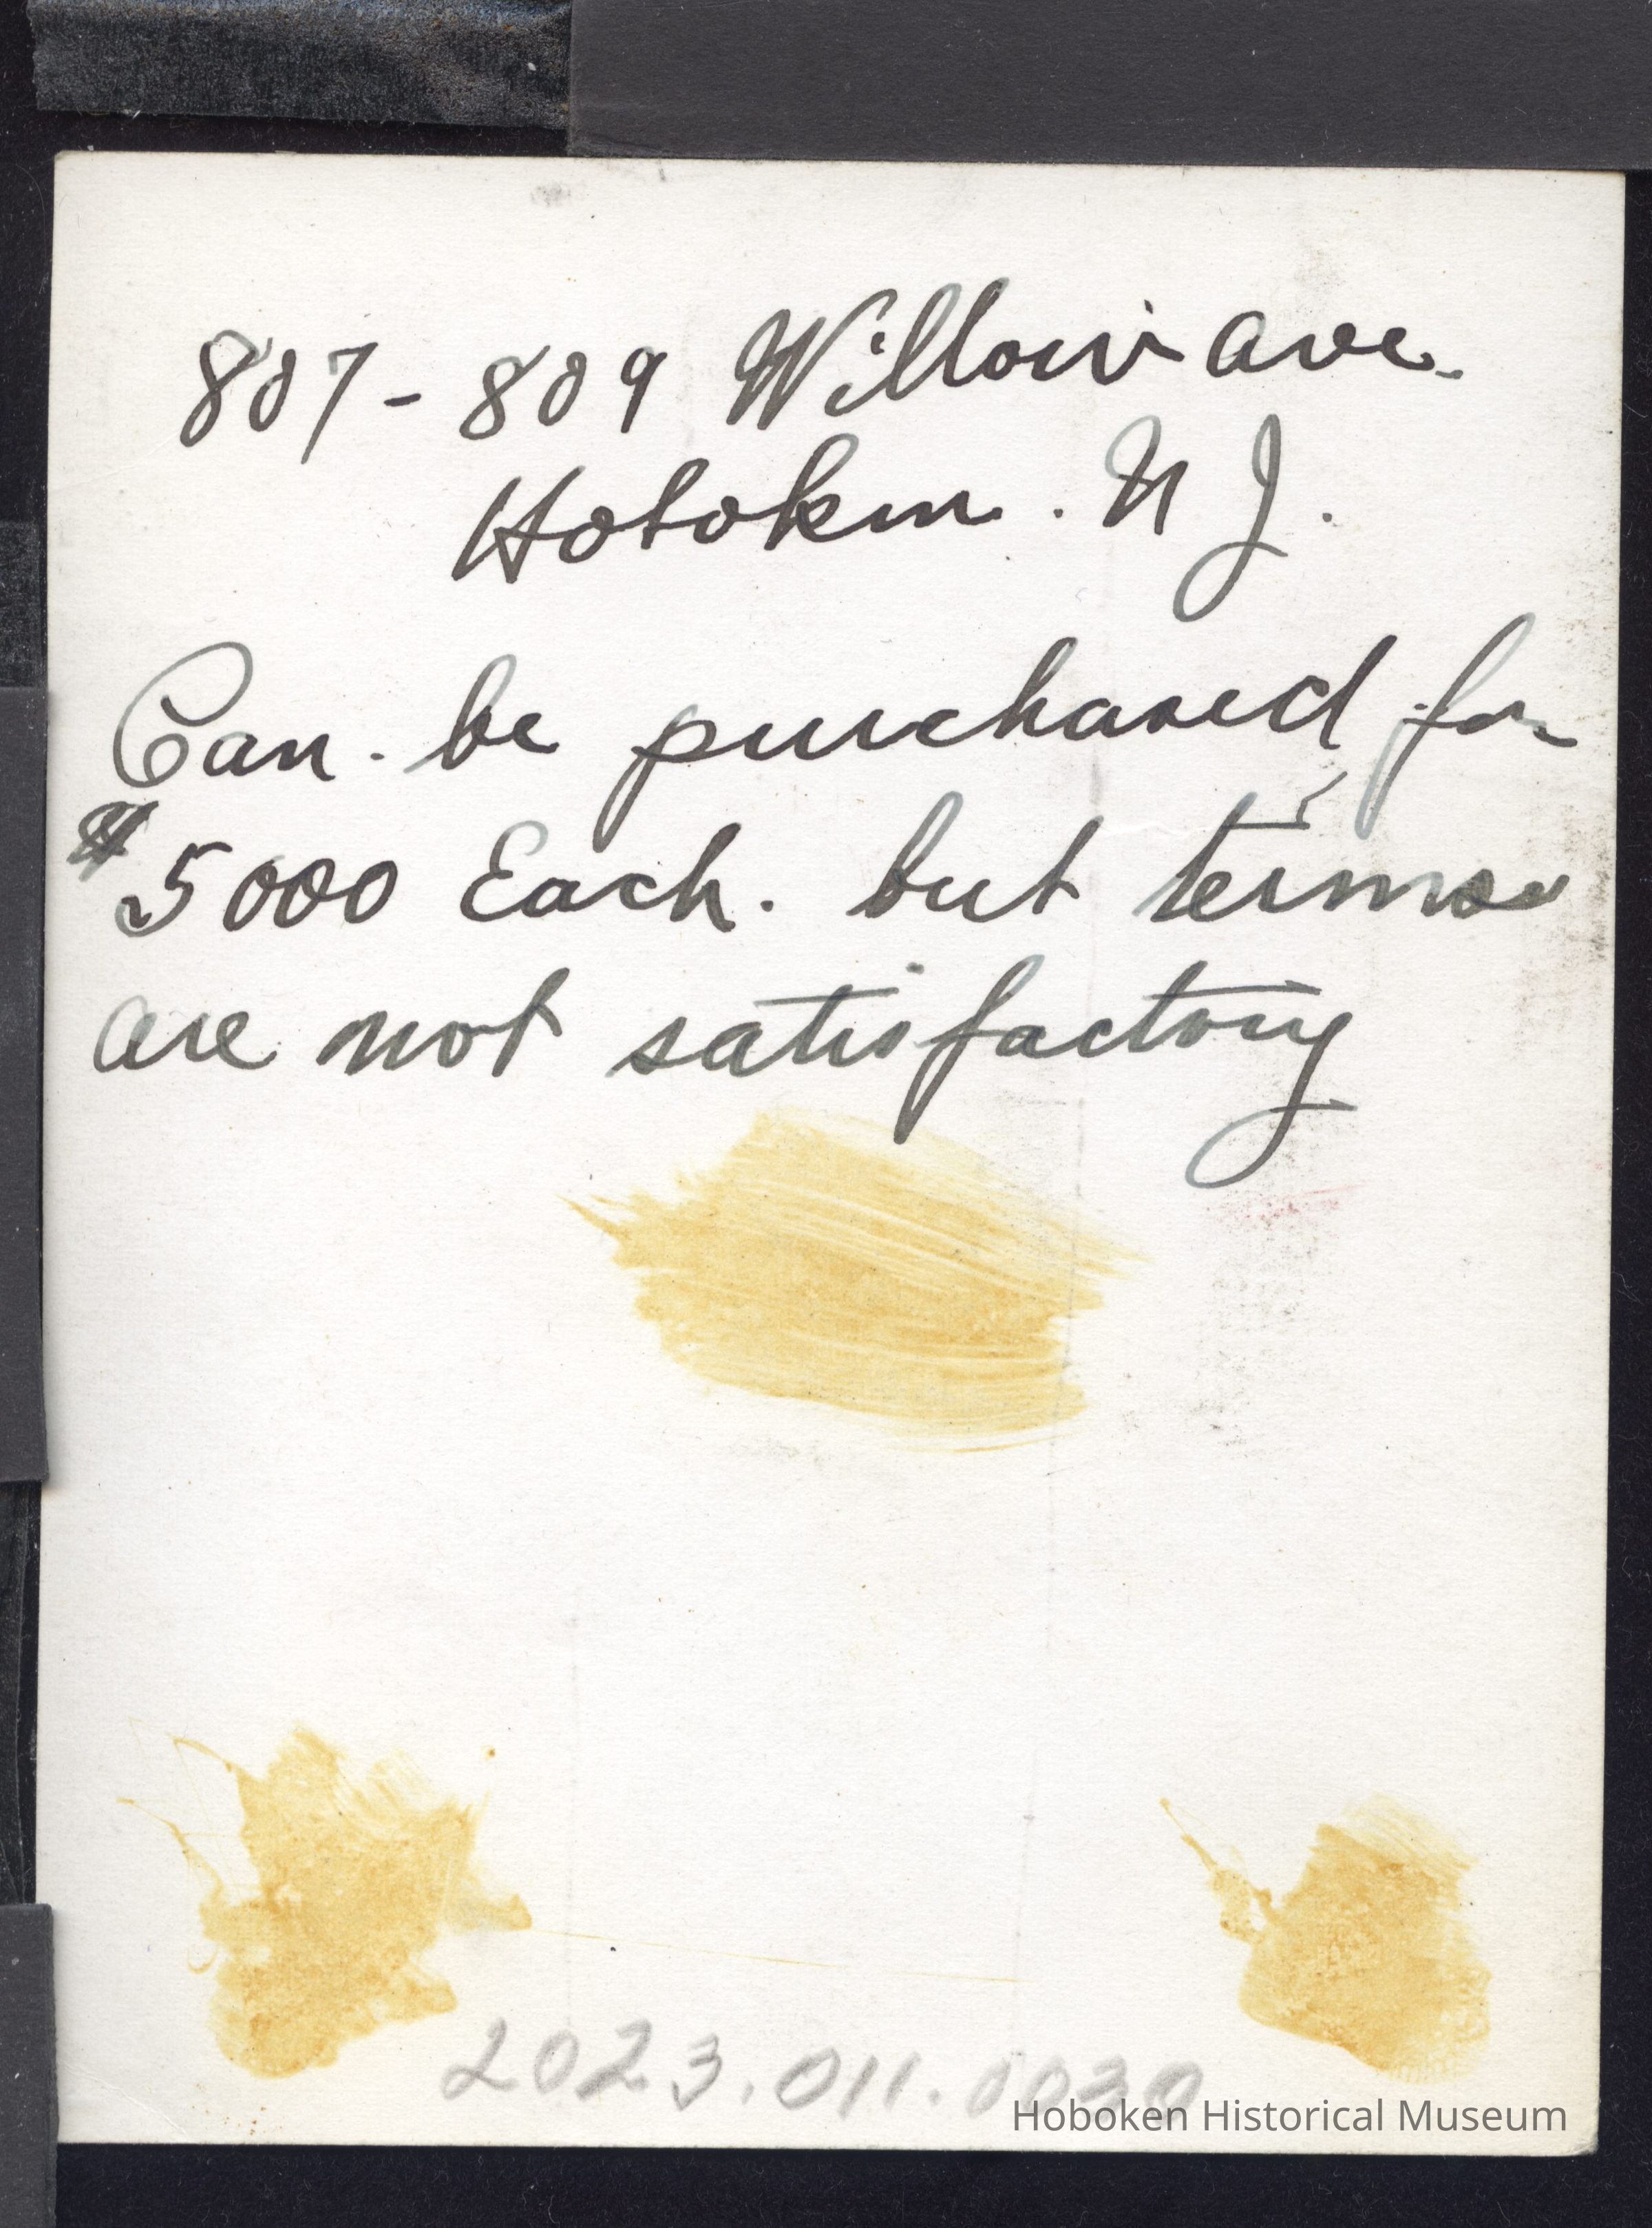 807 - 809 Willow Ave.
Hoboken. N J.
Can. be purchased for
$5000 Each. but terms
are not satisfactory
2023.011.0030
Hoboken Historical Museum